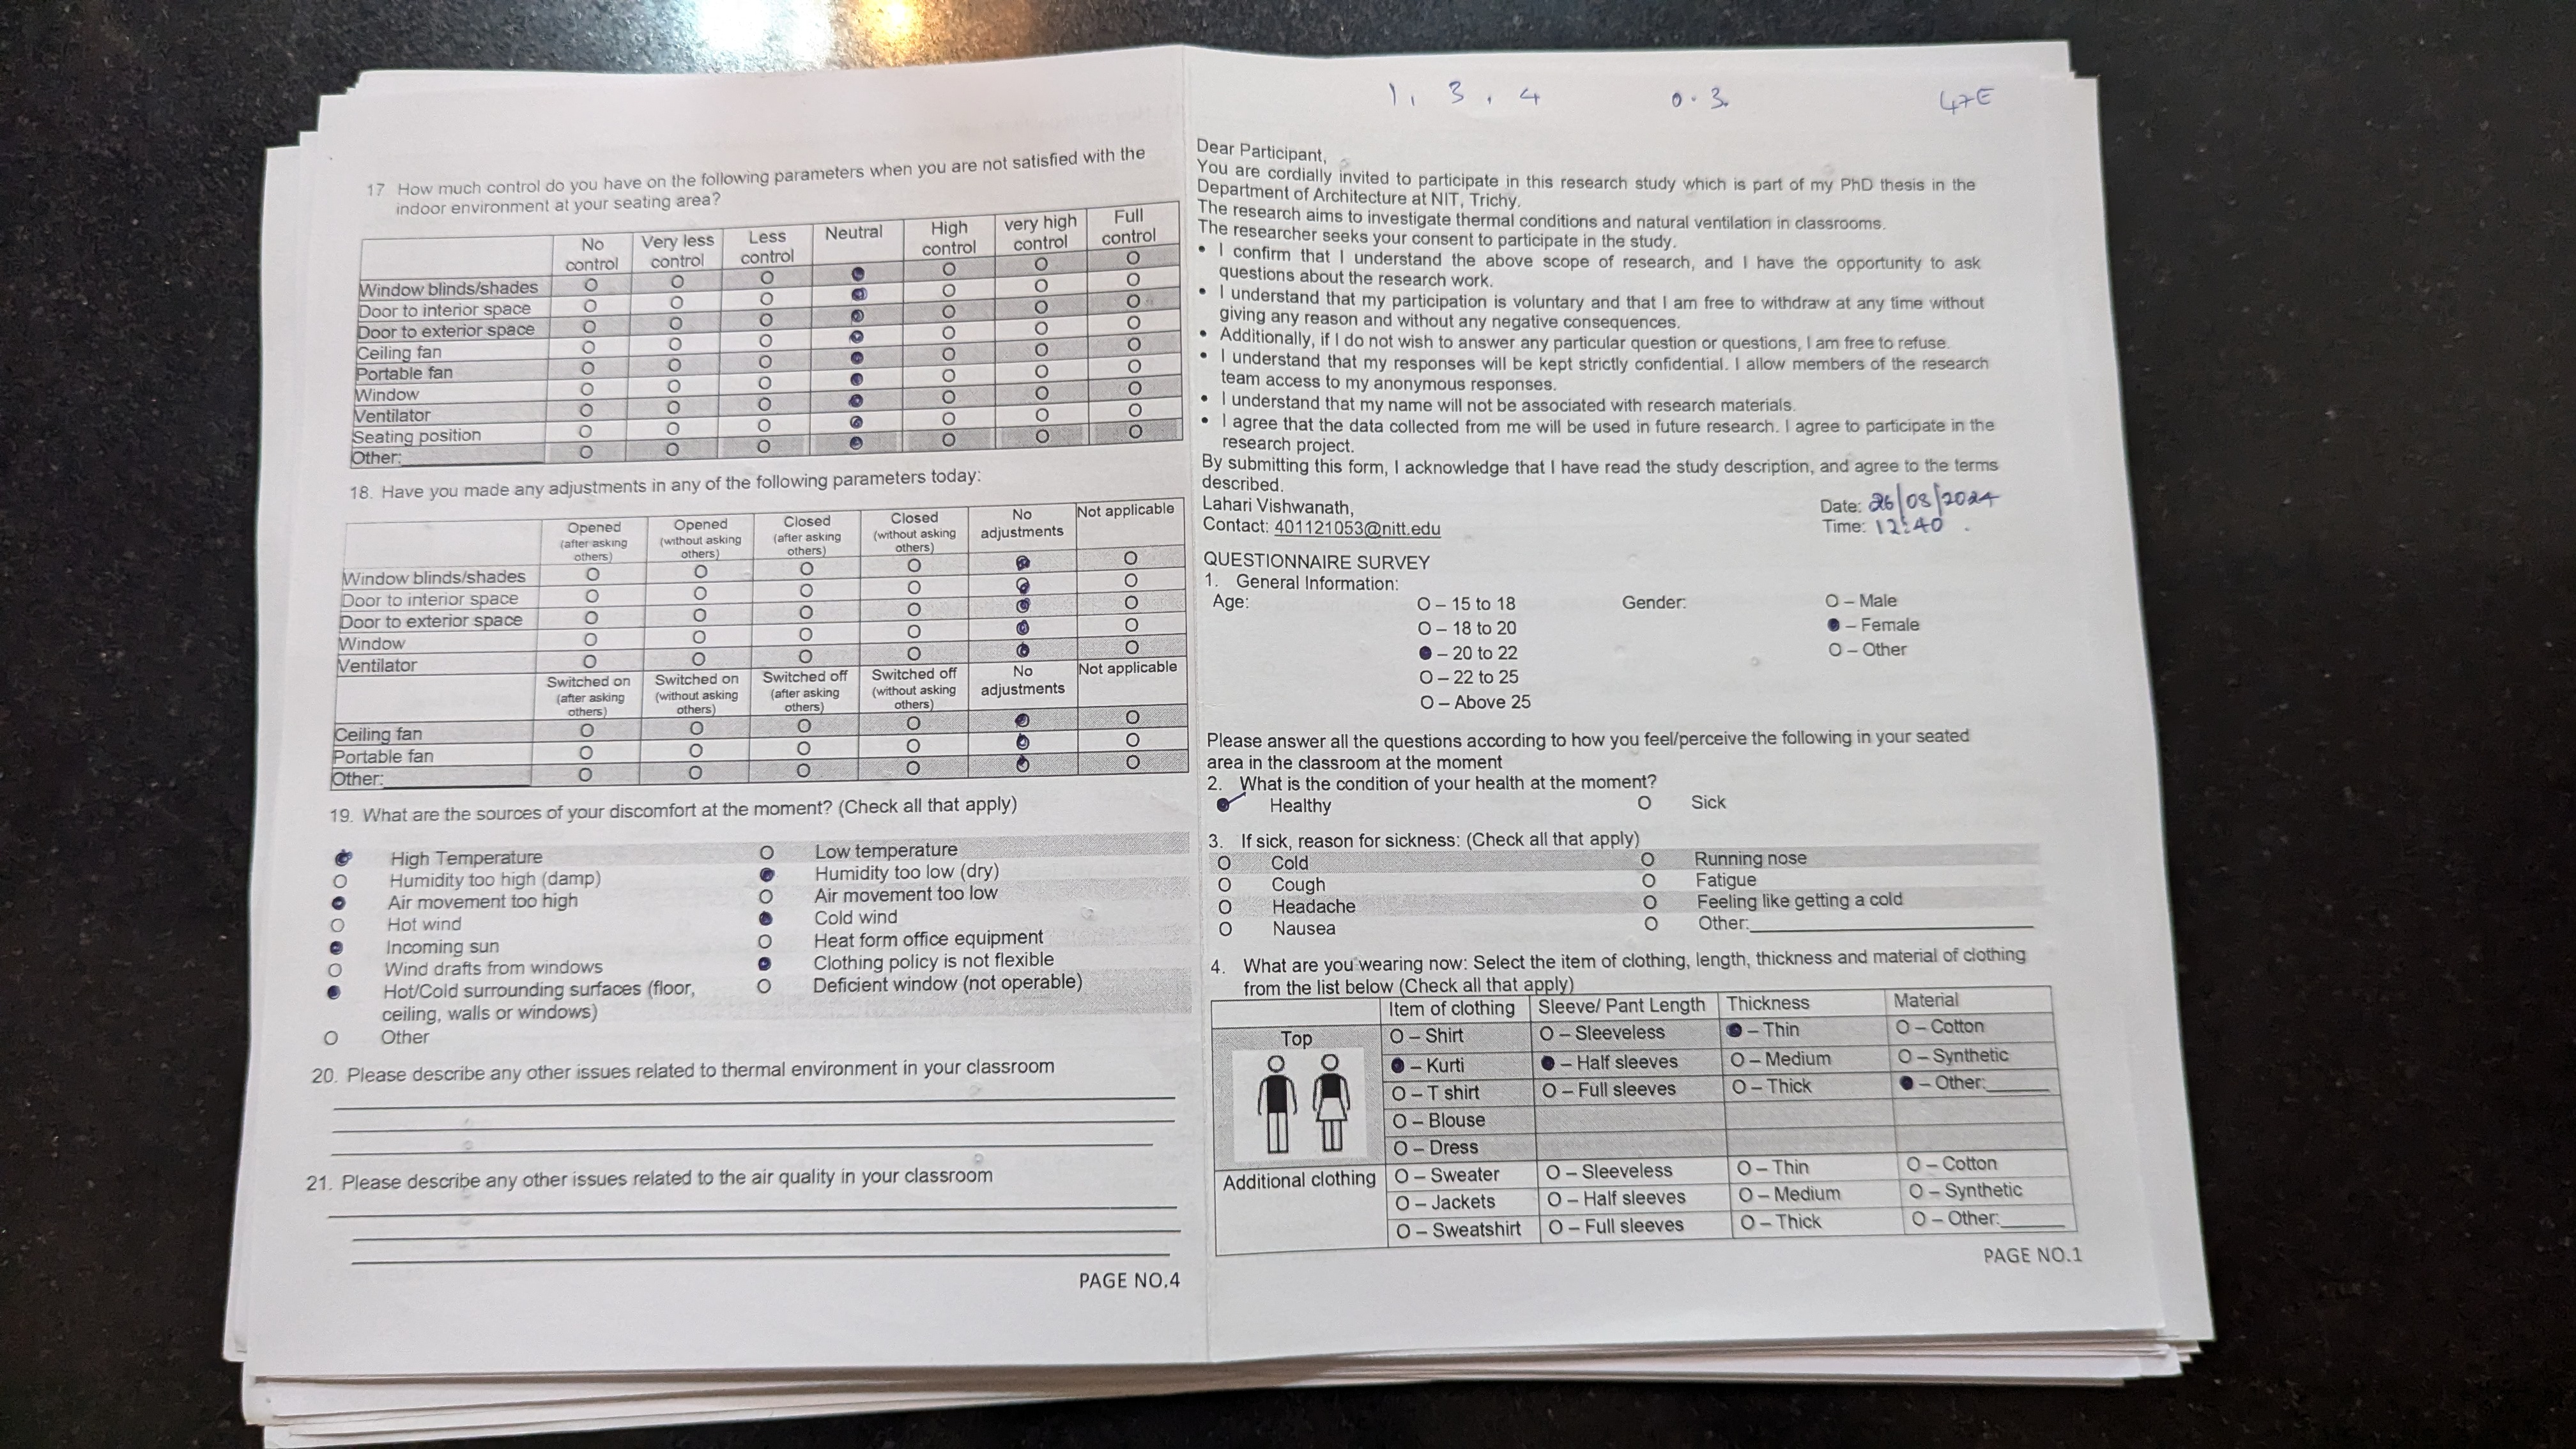 17 How much control do you have on the following parameters when you are not satisfied with the
indoor environment at your seating area?
No control Very less control Less control Neutral High control very high control Full control
Window blinds/shades O O O ● O O O
Door to interior space O O O ● O O O
Door to exterior space O O O ● O O O
Ceiling fan O O O ● O O O
Portable fan O O O ● O O O
Window O O O ● O O O
Ventilator O O O ● O O O
Seating position O O O ● O O O
Other:__________ O O O ● O O O
18. Have you made any adjustments in any of the following parameters today:
Opened (after asking others) Opened (without asking others) Closed (after asking others) Closed (without asking others) No adjustments Not applicable
Window blinds/shades O O O O ● O
Door to interior space O O O O ● O
Door to exterior space O O O O ● O
Window O O O O ● O
Ventilator O O O O ● O
Switched on (after asking others) Switched on (without asking others) Switched off (after asking others) Switched off (without asking others) No adjustments Not applicable
Ceiling fan O O O O ● O
Portable fan O O O O ● O
Other:__________ O O O O ● O
19. What are the sources of your discomfort at the moment? (Check all that apply)
● High Temperature O Low temperature
O Humidity too high (damp) ● Humidity too low (dry)
● Air movement too high O Air movement too low
O Hot wind ● Cold wind
● Incoming sun O Heat form office equipment
O Wind drafts from windows ● Clothing policy is not flexible
● Hot/Cold surrounding surfaces (floor, O Deficient window (not operable)
ceiling, walls or windows)
O Other
20. Please describe any other issues related to thermal environment in your classroom
21. Please describe any other issues related to the air quality in your classroom
PAGE NO.4
1, 3, 4 0.3 47E
Dear Participant,
You are cordially invited to participate in this research study which is part of my PhD thesis in the
Department of Architecture at NIT, Trichy.
The research aims to investigate thermal conditions and natural ventilation in classrooms.
The researcher seeks your consent to participate in the study.
• I confirm that I understand the above scope of research, and I have the opportunity to ask
questions about the research work.
• I understand that my participation is voluntary and that I am free to withdraw at any time without
giving any reason and without any negative consequences.
• Additionally, if I do not wish to answer any particular question or questions, I am free to refuse.
• I understand that my responses will be kept strictly confidential. I allow members of the research
team access to my anonymous responses.
• I understand that my name will not be associated with research materials.
• I agree that the data collected from me will be used in future research. I agree to participate in the
research project.
By submitting this form, I acknowledge that I have read the study description, and agree to the terms
described.
Lahari Vishwanath, Date: 26/08/2024
Contact: 401121053@nitt.edu Time: 12:40
QUESTIONNAIRE SURVEY
1. General Information:
Age: O – 15 to 18 Gender: O – Male
O – 18 to 20 ● – Female
● – 20 to 22 O – Other
O – 22 to 25
O – Above 25
Please answer all the questions according to how you feel/perceive the following in your seated
area in the classroom at the moment
2. What is the condition of your health at the moment?
● Healthy O Sick
3. If sick, reason for sickness: (Check all that apply)
O Cold O Running nose
O Cough O Fatigue
O Headache O Feeling like getting a cold
O Nausea O Other:__________
4. What are you wearing now: Select the item of clothing, length, thickness and material of clothing
from the list below (Check all that apply)
Item of clothing Sleeve/ Pant Length Thickness Material
Top O – Shirt O – Sleeveless ● – Thin O – Cotton
● – Kurti ● – Half sleeves O – Medium O – Synthetic
O – T shirt O – Full sleeves O – Thick ● – Other:______
O – Blouse
O – Dress
Additional clothing O – Sweater O – Sleeveless O – Thin O – Cotton
O – Jackets O – Half sleeves O – Medium O – Synthetic
O – Sweatshirt O – Full sleeves O – Thick O – Other:______
PAGE NO.1